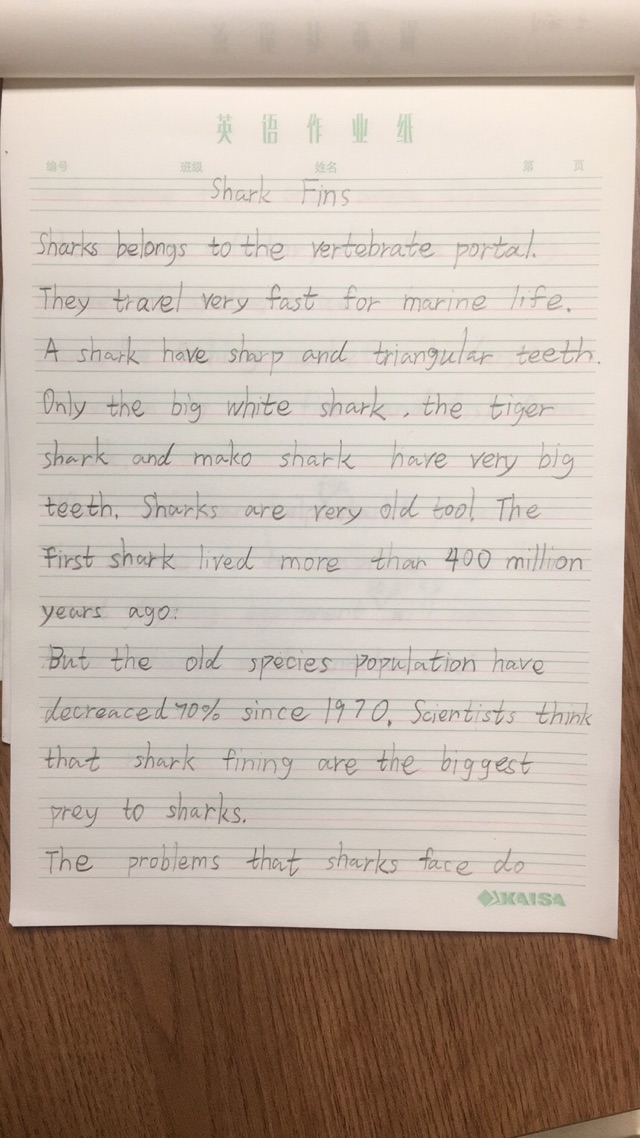 英语作业纸
编号 班级 姓名 第 页
Shark Fins
Sharks belongs to the vertebrate portal.
They travel very fast for marine life.
A shark have sharp and triangular teeth.
Only the big white shark, the tiger
shark and mako shark have very big
teeth. Sharks are very old too! The
first shark lived more than 400 million
years ago.
But the old species population have
decreaced 70% since 1970. Scientists think
that shark fining are the biggest
prey to sharks.
The problems that sharks face do
KAISA